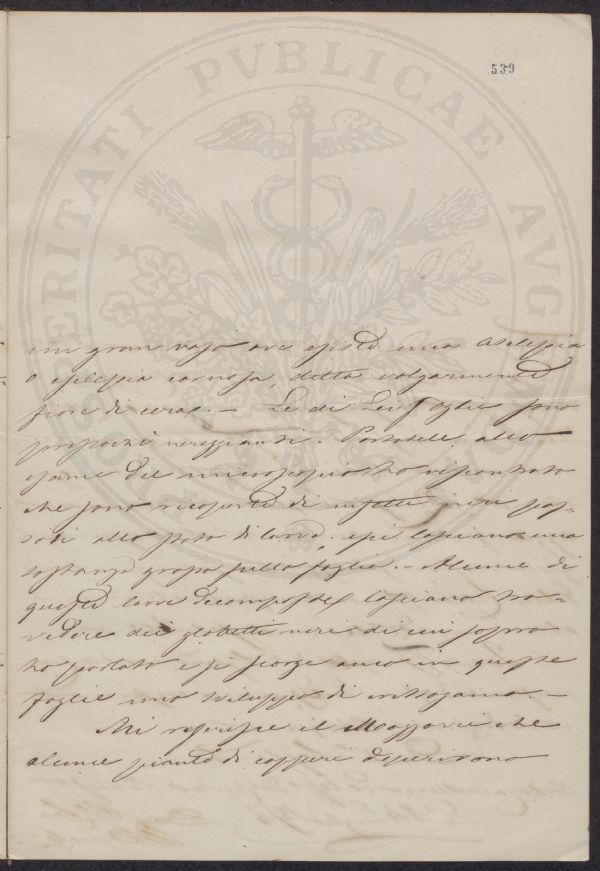 539
PROSPERITATI PVBLICAE AVG
un gran vaso ove esiste una asclepia
o esclepia carnosa, detta volgarmente
fiore di cera. — Le di Lei foglie sono
nereggianti. Portatele allo
esame del microscopio ho riscontrato
che sono ricoperte di insetti neri pas-
sati allo stato di larva, essi lasciano una
sostanza grassa sulle foglie. — Alcune di
queste larve decomposte lasciano tra-
vedere dei globetti neri di cui sopra
ho parlato e si scorge anco in queste
foglie uno sviluppo di crittogama. —
Mi riferisce il Mazzarri che
alcune piante di capperi deperirono